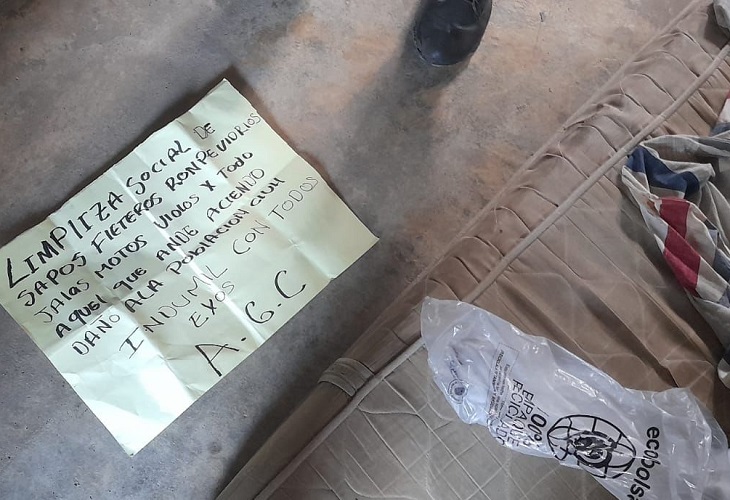 LIMPIIZA SOCIAL DE
SAPOS FLETEROS RONPEVIDRIOS
JALAS MOTOS VICIOS X TODO
AQUEL QUE ANDE ACIENDO
DAÑO ALA POBLACION CIVIL
INDUMIL CON TODOS
EYOS
A.G.C
ecobols
100%